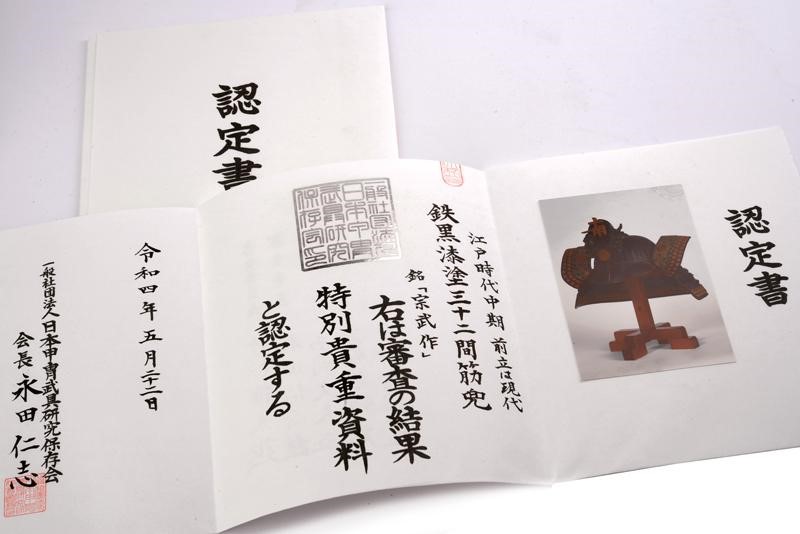 認定書
認定書
江戸時代中期 前立は現代
鉄黒漆塗三十二間筋兜
銘「宗武作」
右は審査の結果
特別貴重資料
と認定する
令和四年五月二十二日
一般社団法人日本甲冑武具研究保存会
会長 永田仁志